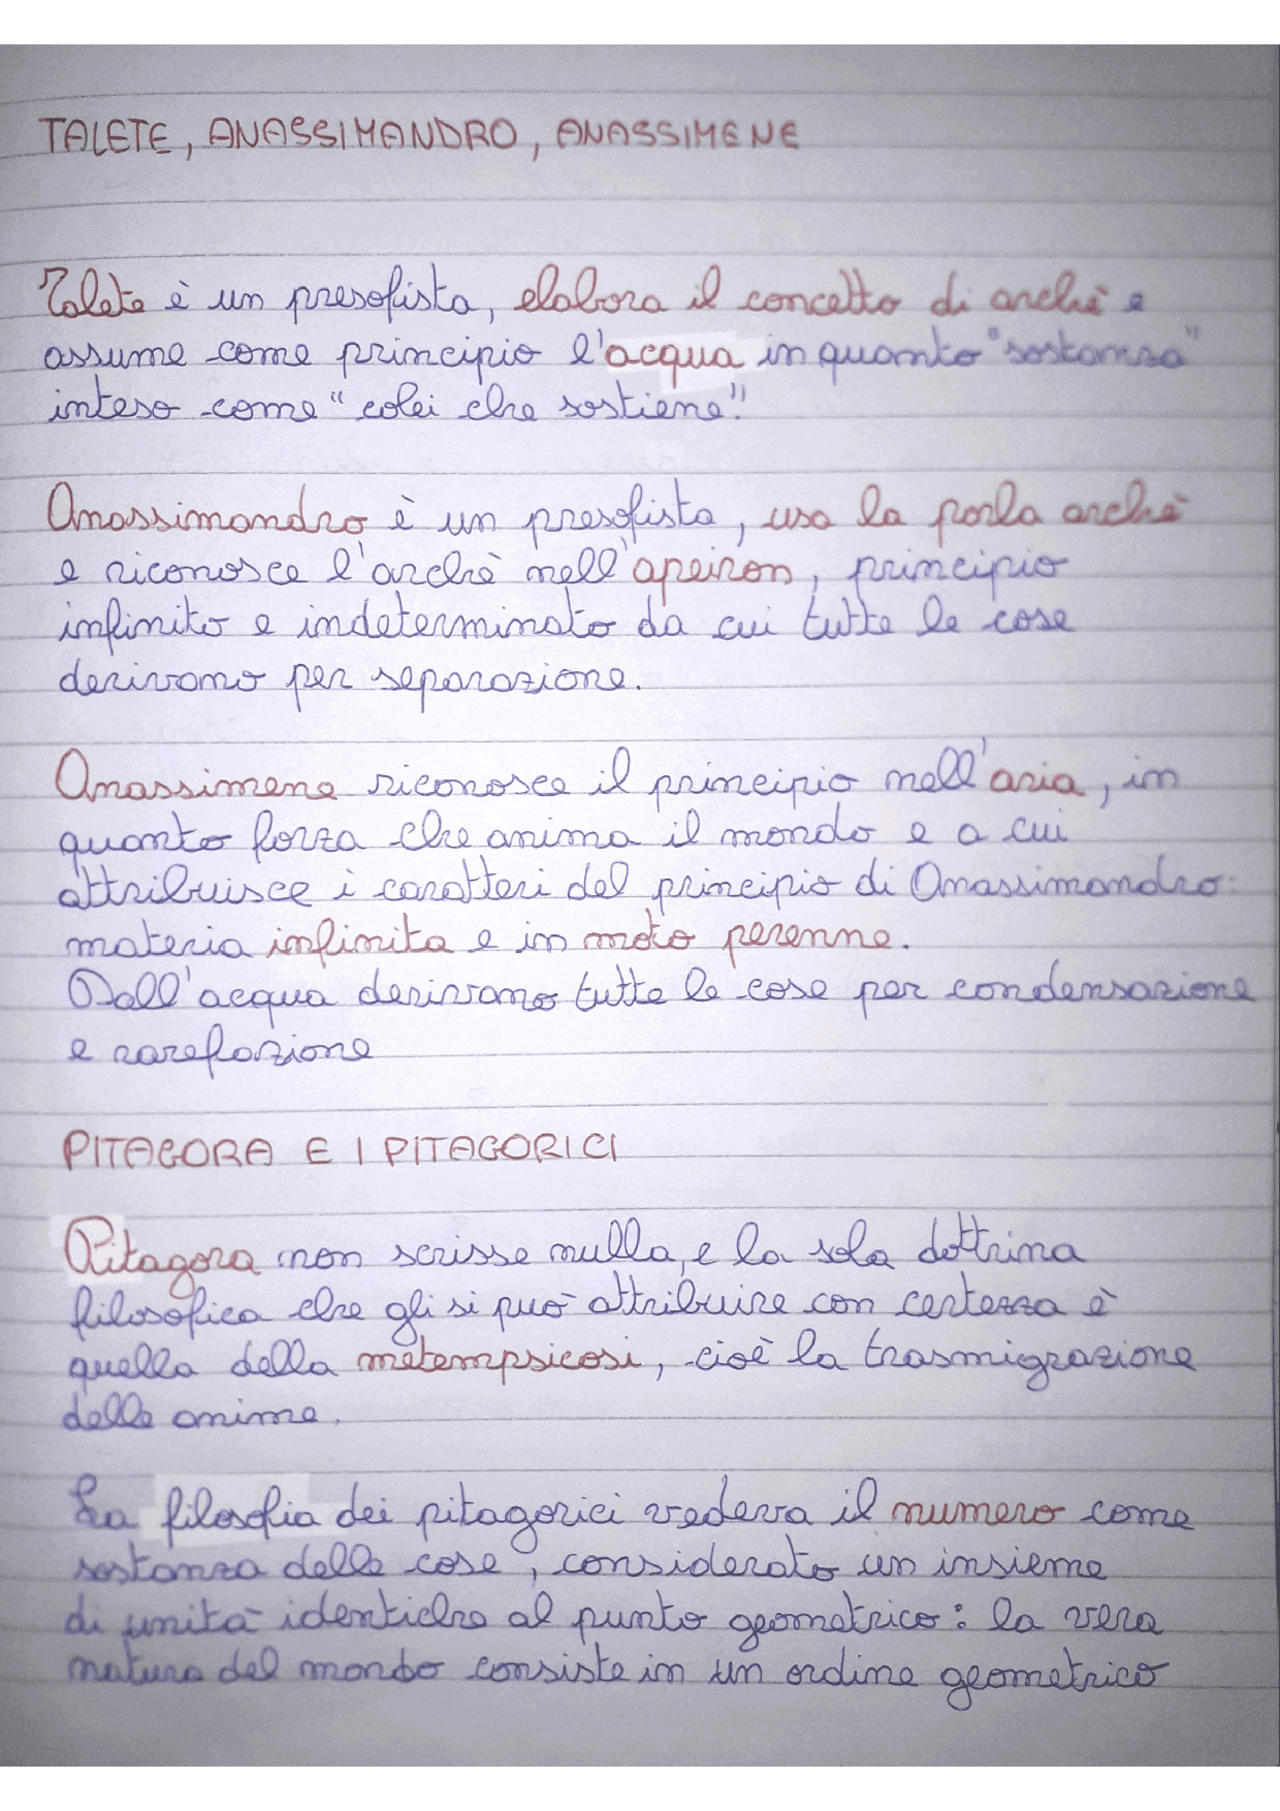 TALETE, ANASSIMANDRO, ANASSIMENE
Talete è un presofista, elabora il concetto di archè e
assume come principio l'acqua in quanto "sostanza"
inteso come "colei che sostiene".
Anassimandro è un presofista, usa la porla archè
e riconosce l'archè nell'apeiron, principio
infinito e indeterminato da cui tutte le cose
derivano per separazione.
Anassimene riconosce il principio nell'aria, in
quanto forza che anima il mondo e a cui
attribuisce i caratteri del principio di Anassimandro:
materia infinita e in moto perenne.
Dall'acqua derivano tutte le cose per condensazione
e rarefazione
PITAGORA E I PITAGORICI
Pitagora non scrisse nulla, e la sola dottrina
filosofica che gli si può attribuire con certezza è
quella della metempsicosi, cioè la trasmigrazione
delle anime.
La filosofia dei pitagorici vedeva il numero come
sostanza delle cose, considerato un insieme
di unità identiche al punto geometrico: la vera
natura del mondo consiste in un ordine geometrico